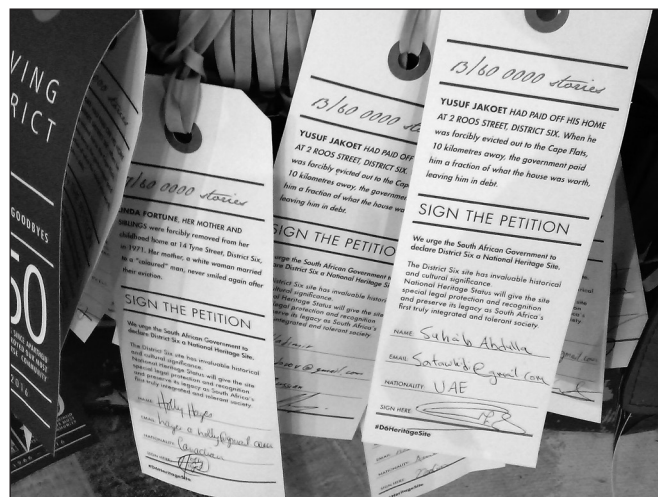 VING
RICT
GOODBYES
50
2016
7/60 0000 stories
LINDA FORTUNE, HER MOTHER AND
SIBLINGS were forcibly removed from her
childhood home at 14 Tyne Street, District Six,
in 1971. Her mother, a white woman married
to a "coloured" man, never smiled again after
their eviction.
SIGN THE PETITION
We urge the South African Government to
declare District Six a National Heritage Site.
The District Six site has invaluable historical
and cultural significance.
National Heritage Status will give the site
special legal protection and recognition
and preserve its legacy as South Africa's
first truly integrated and tolerant society.
NAME: Holly Hayes
EMAIL:
NATIONALITY: Canadian
SIGN HERE:
#D6HeritageSite
13/60 0000
YUSUF JAKOET HAD PAID OFF
AT 2 ROOS STREET, DISTRICT SIX.
was forcibly evicted out to the Cape
10 kilometres away, the government
him a fraction of what the house was
leaving him in debt.
SIGN THE PETITIO
We urge the South African Government to
declare District Six a National Heritage Site.
District Six site has invaluable historical
cultural significance.
National Heritage Status will give the site
special legal protection and recognition
and preserve its legacy as South Africa's
integrated and tolerant society.
13/60 0000 stories
YUSUF JAKOET HAD PAID OFF HIS HOME
AT 2 ROOS STREET, DISTRICT SIX. When he
was forcibly evicted out to the Cape Flats,
10 kilometres away, the government paid
him a fraction of what the house was worth,
leaving him in debt.
SIGN THE PETITION
We urge the South African Government to
declare District Six a National Heritage Site.
The District Six site has invaluable historical
and cultural significance.
National Heritage Status will give the site
special legal protection and recognition
and preserve its legacy as South Africa's
first truly integrated and tolerant society.
NAME: Suhaib Abdulla
EMAIL:
NATIONALITY: UAE
SIGN HERE:
#D6HeritageSite